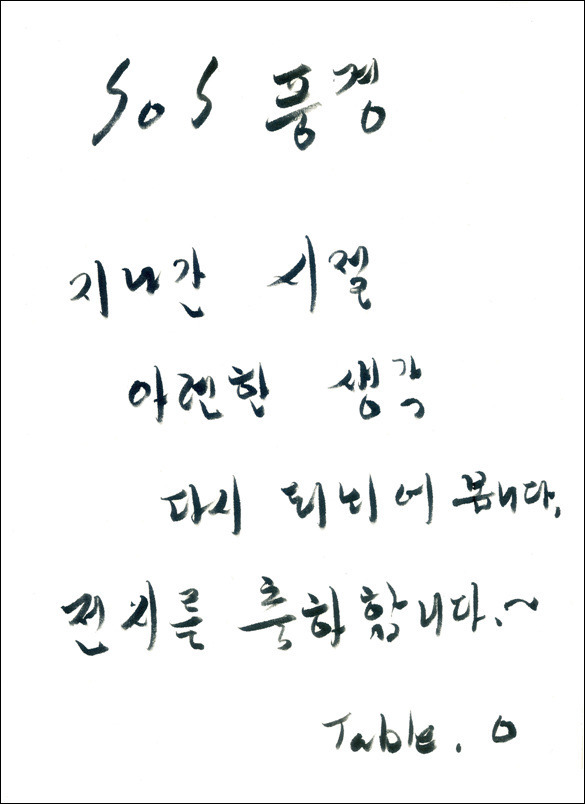 SOS 풍경
지나간 시절
아련한 생각
다시 되뇌어 봅니다.
전시를 축하합니다.~
Table. O